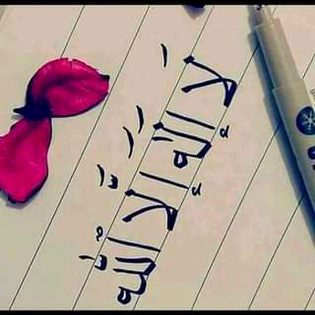 لَا إلَهَ إلَّا اللَّه